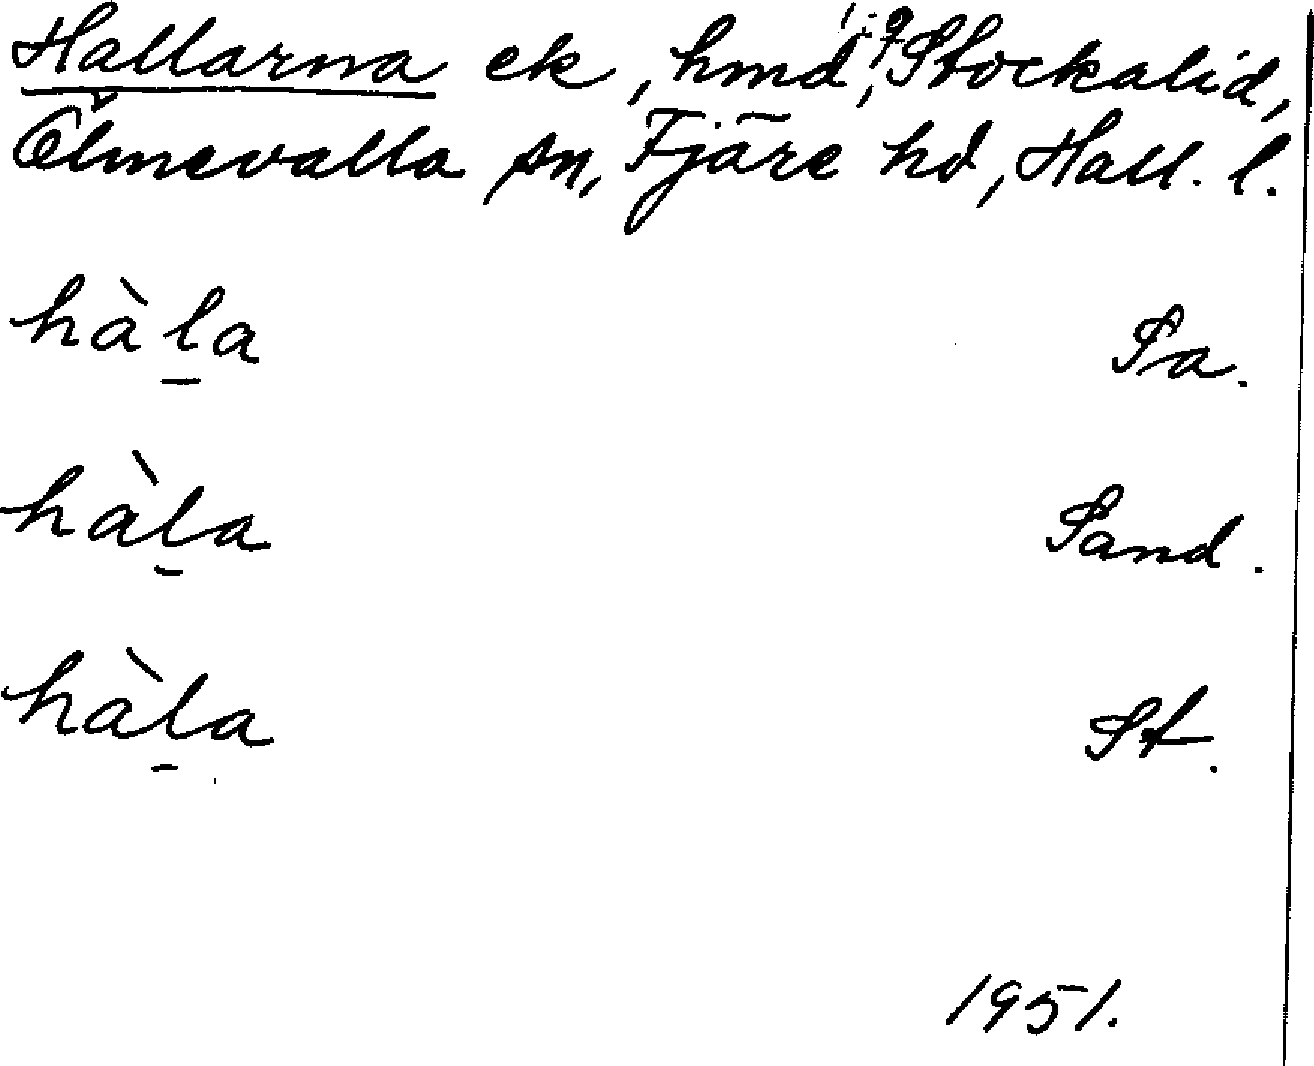 Hallarna ek, hmd, Stockalid,
Ölmevalla sn, Fjäre hd, Hall. l.
hàl̲a Sa.
hàl̲a Sand.
hàl̲a St.
1951.